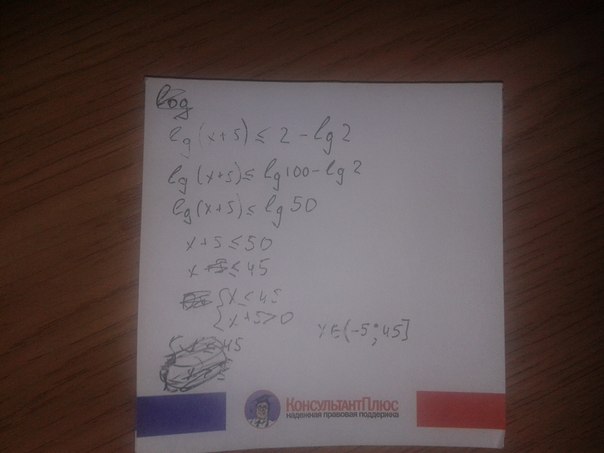 log
lg(x+5) ≤ 2 - lg2
lg(x+5) ≤ lg100 - lg2
lg(x+5) ≤ lg50
x+5 ≤ 50
x ≤ 45
{x ≤ 45
{x+5>0
x∈(-5;45]
45
КонсультантПлюс
надежная правовая поддержка